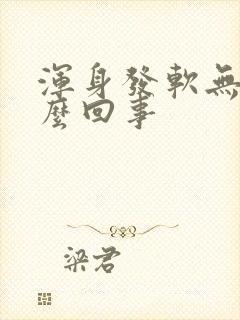 渾身發軟無
麼回事
梁君